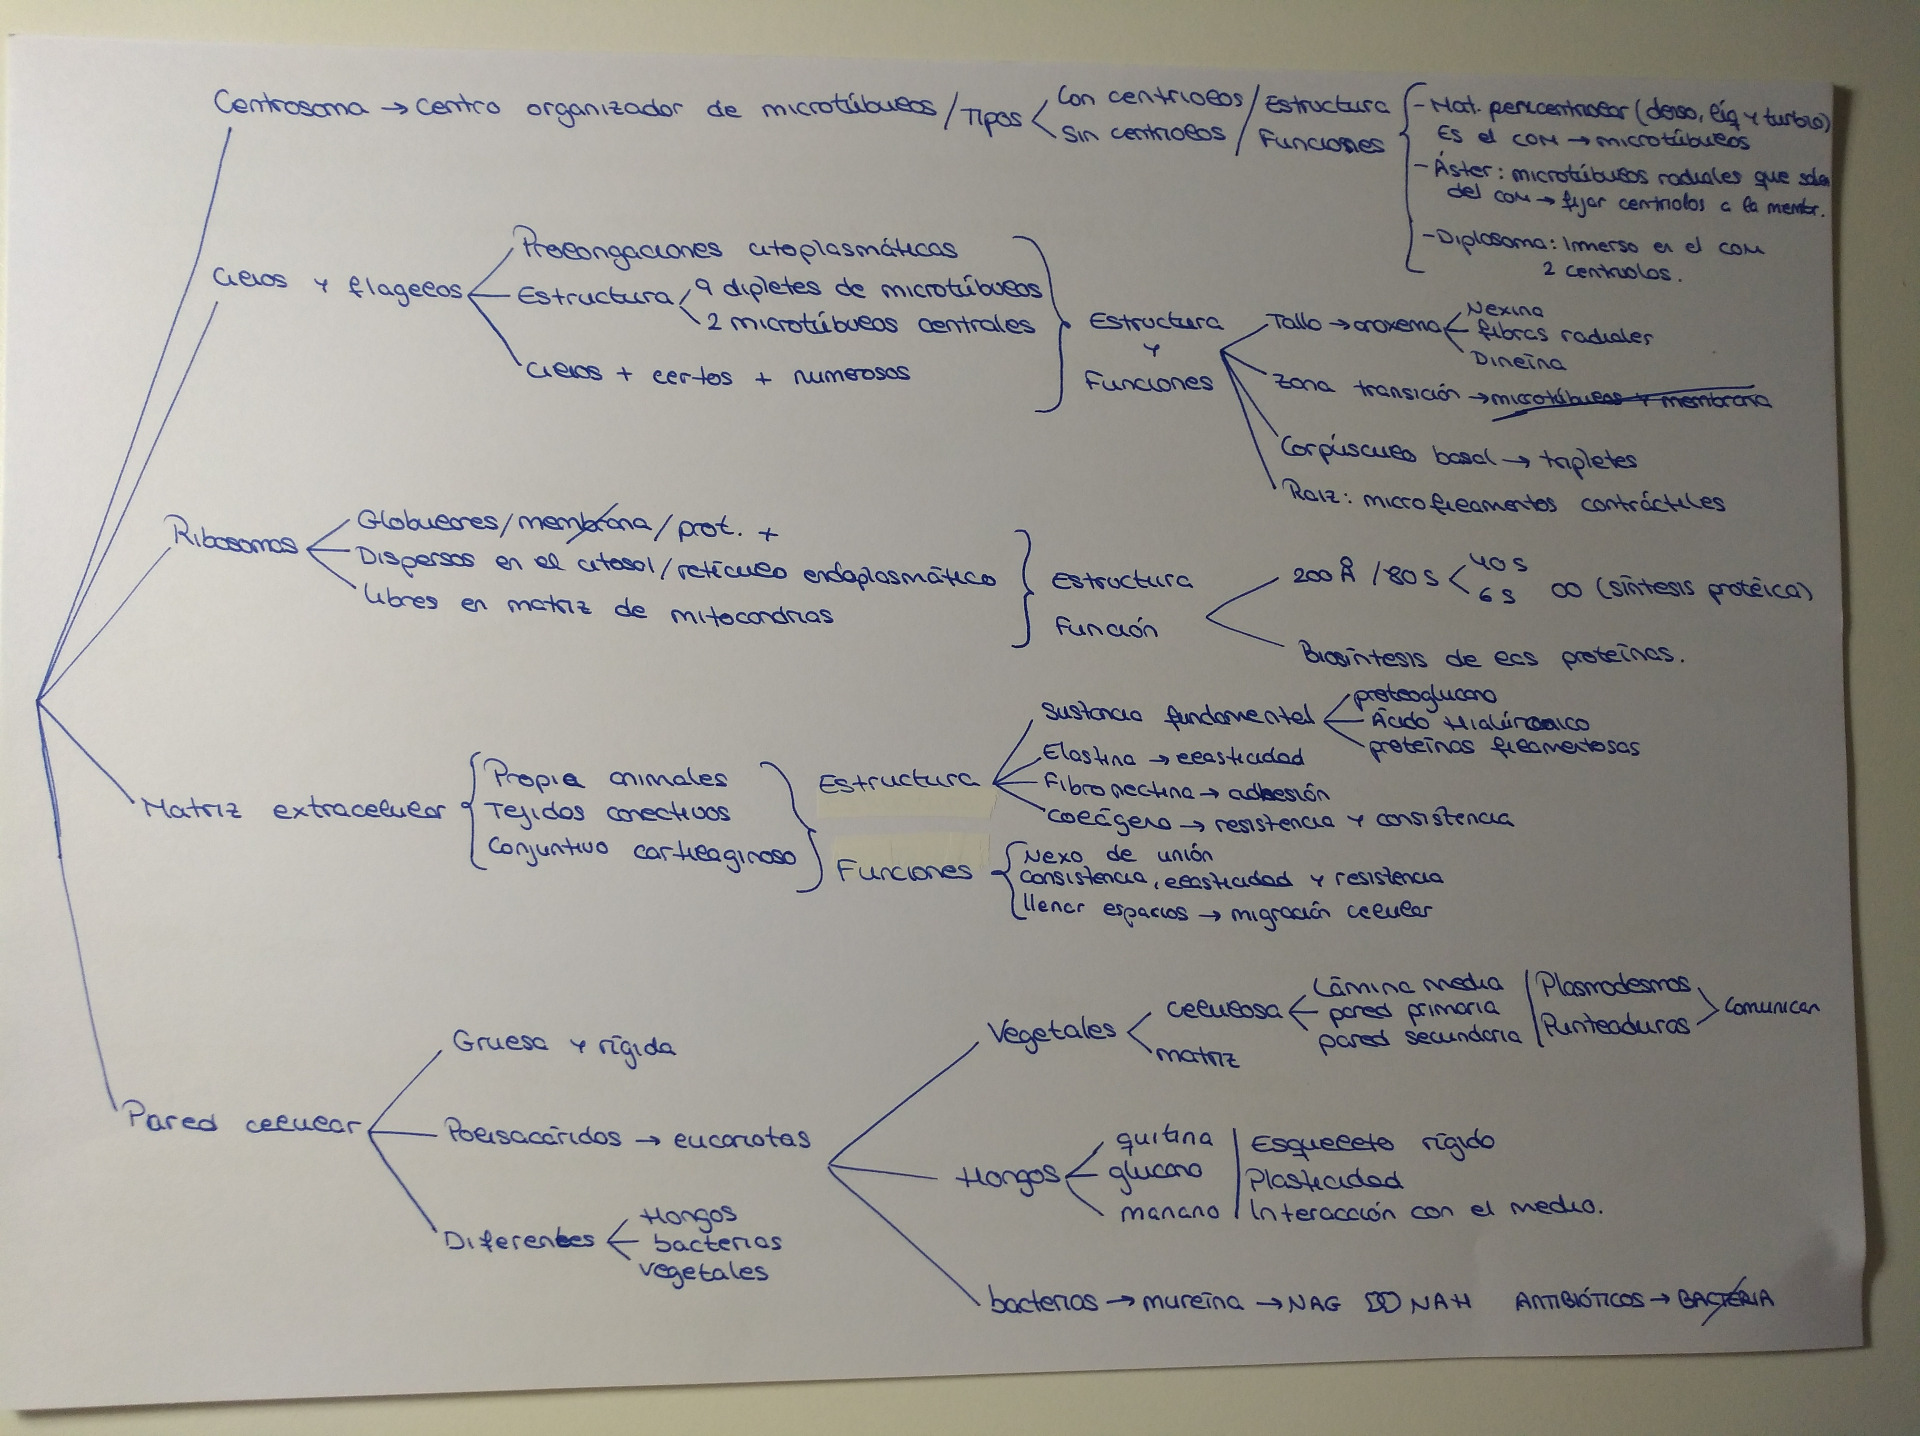 Centrosoma → Centro organizador de microtúbulos / Tipos < Con centriolos / Estructura
Sin centriolos / Funciones
- Mat. pericentriolar (denso, líq y turbio)
Es el COM → microtúbulos
- Áster: microtúbulos radiales que salen
del COM → fijar centriolos a la membr.
- Diplosoma: Inmerso en el COM
2 centriolos.
Cilios y flagelos
Prolongaciones citoplasmáticas
Estructura 9 dipletes de microtúbulos
2 microtúbulos centrales
Cilios + cortos + numerosos
Estructura
y
Funciones
Tallo → axonema
Nexina
fibras radiales
Dineína
Zona transición → microtúbulos y membrana
Corpúsculo basal → tripletes
Raíz: microfilamentos contráctiles
Ribosomas
Globulares / membrana / prot. +
Dispersos en el citosol / retículo endoplasmático
Libres en matriz de mitocondrias
Estructura
Función
200 Å / 80 S < 40 S
6 S ∞ (síntesis protéica)
Biosíntesis de las proteínas.
Matriz extracelular
Propia animales
Tejidos conectivos
Conjuntivo cartilaginoso
Estructura
Sustancia fundamental
proteoglucano
Ácido Hialúronico
proteínas filamentosas
Elastina → elasticidad
Fibronectina → adhesión
Colágeno → resistencia y consistencia
Funciones
Nexo de unión
consistencia, elasticidad y resistencia
llenar espacios → migración celular
Pared celular
Gruesa y rígida
Polisacáridos → eucariotas
Diferentes
Hongos
bacterias
vegetales
Vegetales
celulosa
Lámina media
pared primaria
pared secundaria
Plasmodesmos
Punteaduras
Comunican
matriz
Hongos
quitina
glucano
manano
Esqueleto rígido
Plasticidad
Interacción con el medio.
bacterias → mureína → NAG NAM ANTIBIÓTICOS → BACTERIA